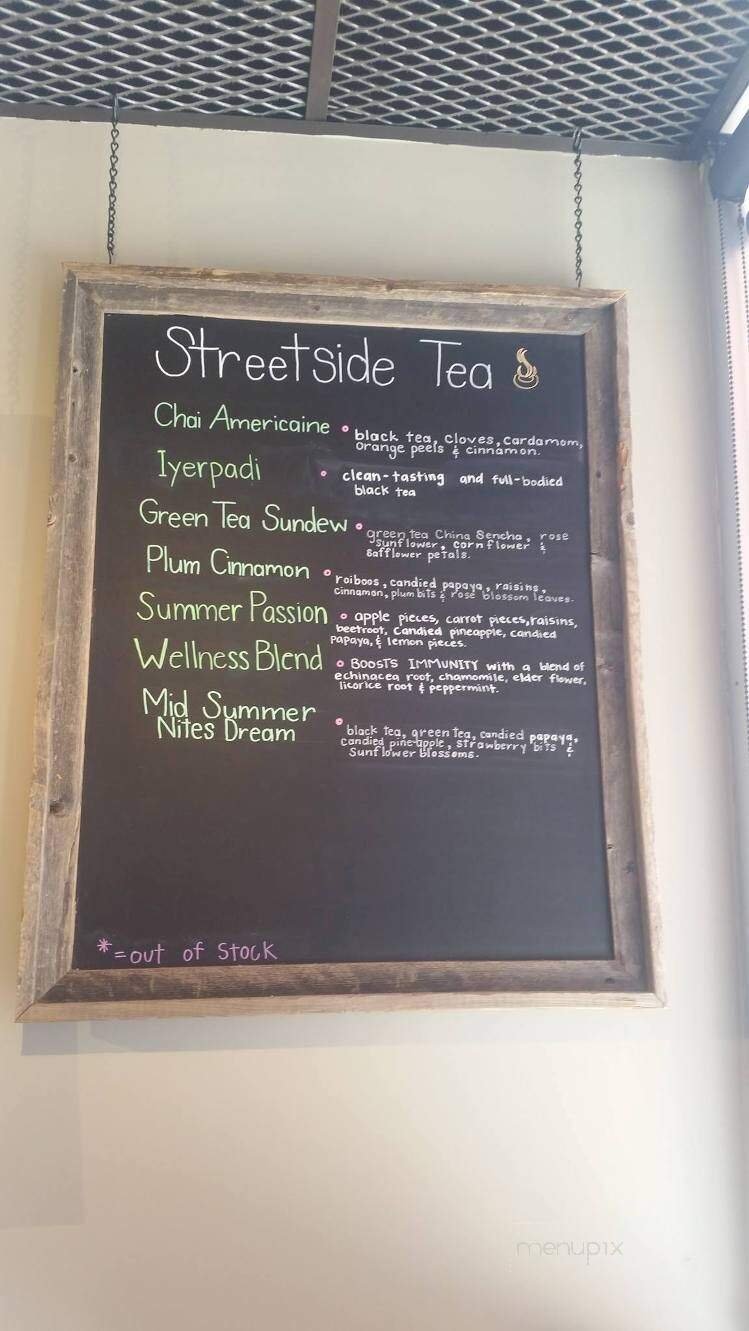 Streetside Tea
Chai Americaine
black tea, cloves, cardamom,
orange peels & cinnamon.
Iyerpadi
clean-tasting and full-bodied
black tea
Green Tea Sundew
green tea China Sencha, rose
sunflower, cornflower &
safflower petals.
Plum Cinnamon
roiboos, candied papaya, raisins,
cinnamon, plum bits & rose blossom leaves.
Summer Passion
apple pieces, carrot pieces, raisins,
beetroot, candied pineapple, candied
papaya, & lemon pieces.
Wellness Blend
BOOSTS IMMUNITY with a blend of
echinacea root, chamomile, elder flower,
licorice root & peppermint.
Mid Summer
Nites Dream
black tea, green tea, candied papaya,
candied pineapple, strawberry bits &
sunflower blossoms.
*=out of stock
menupix